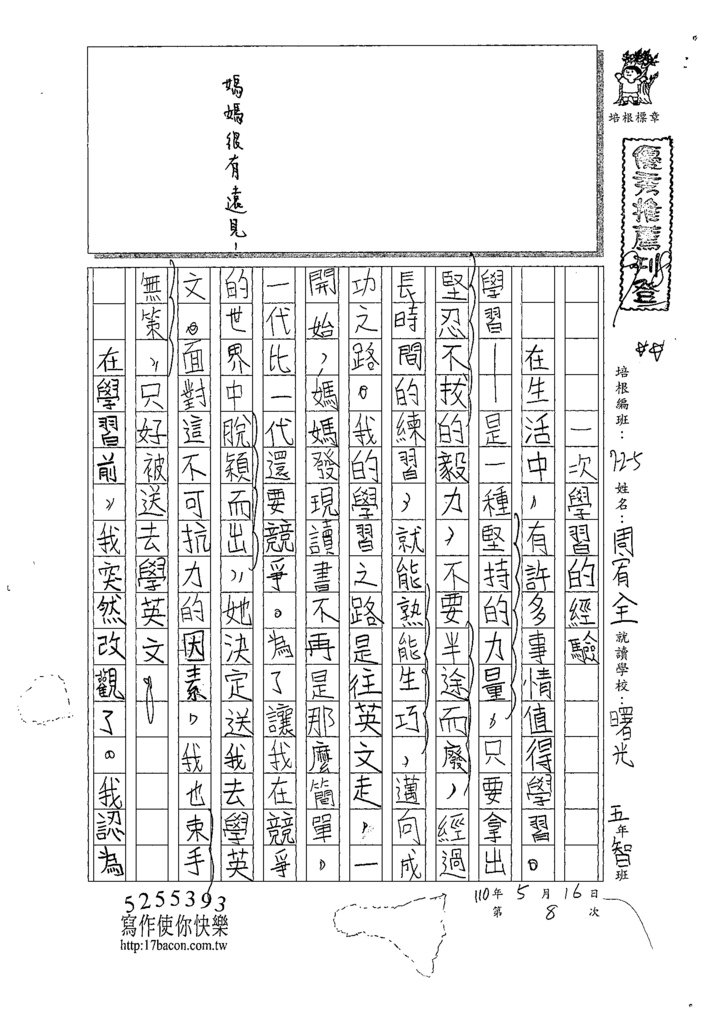 培根標章
優秀推薦刊登
培根編班：72-5 姓名：周宥全 就讀學校：曙光 五年智班
一次學習的經驗
在生活中，有許多事情值得學習。
學習——是一種堅持的力量，只要拿出
堅忍不拔的毅力，不要半途而廢，經過
長時間的練習，就能熟能生巧，邁向成
功之路。我的學習之路是往英文走，一
開始，媽媽發現讀書不再是那麼簡單，
一代比一代還要競爭。為了讓我在競爭
的世界中脫穎而出，她決定送我去學英
文。面對這不可抗力的因素，我也束手
無策，只好被送去學英文。
在學習前，我突然改觀了。我認為
媽媽很有遠見！
110年5月16日
第8次
5255393
寫作使你快樂
http:17bacon.com.tw